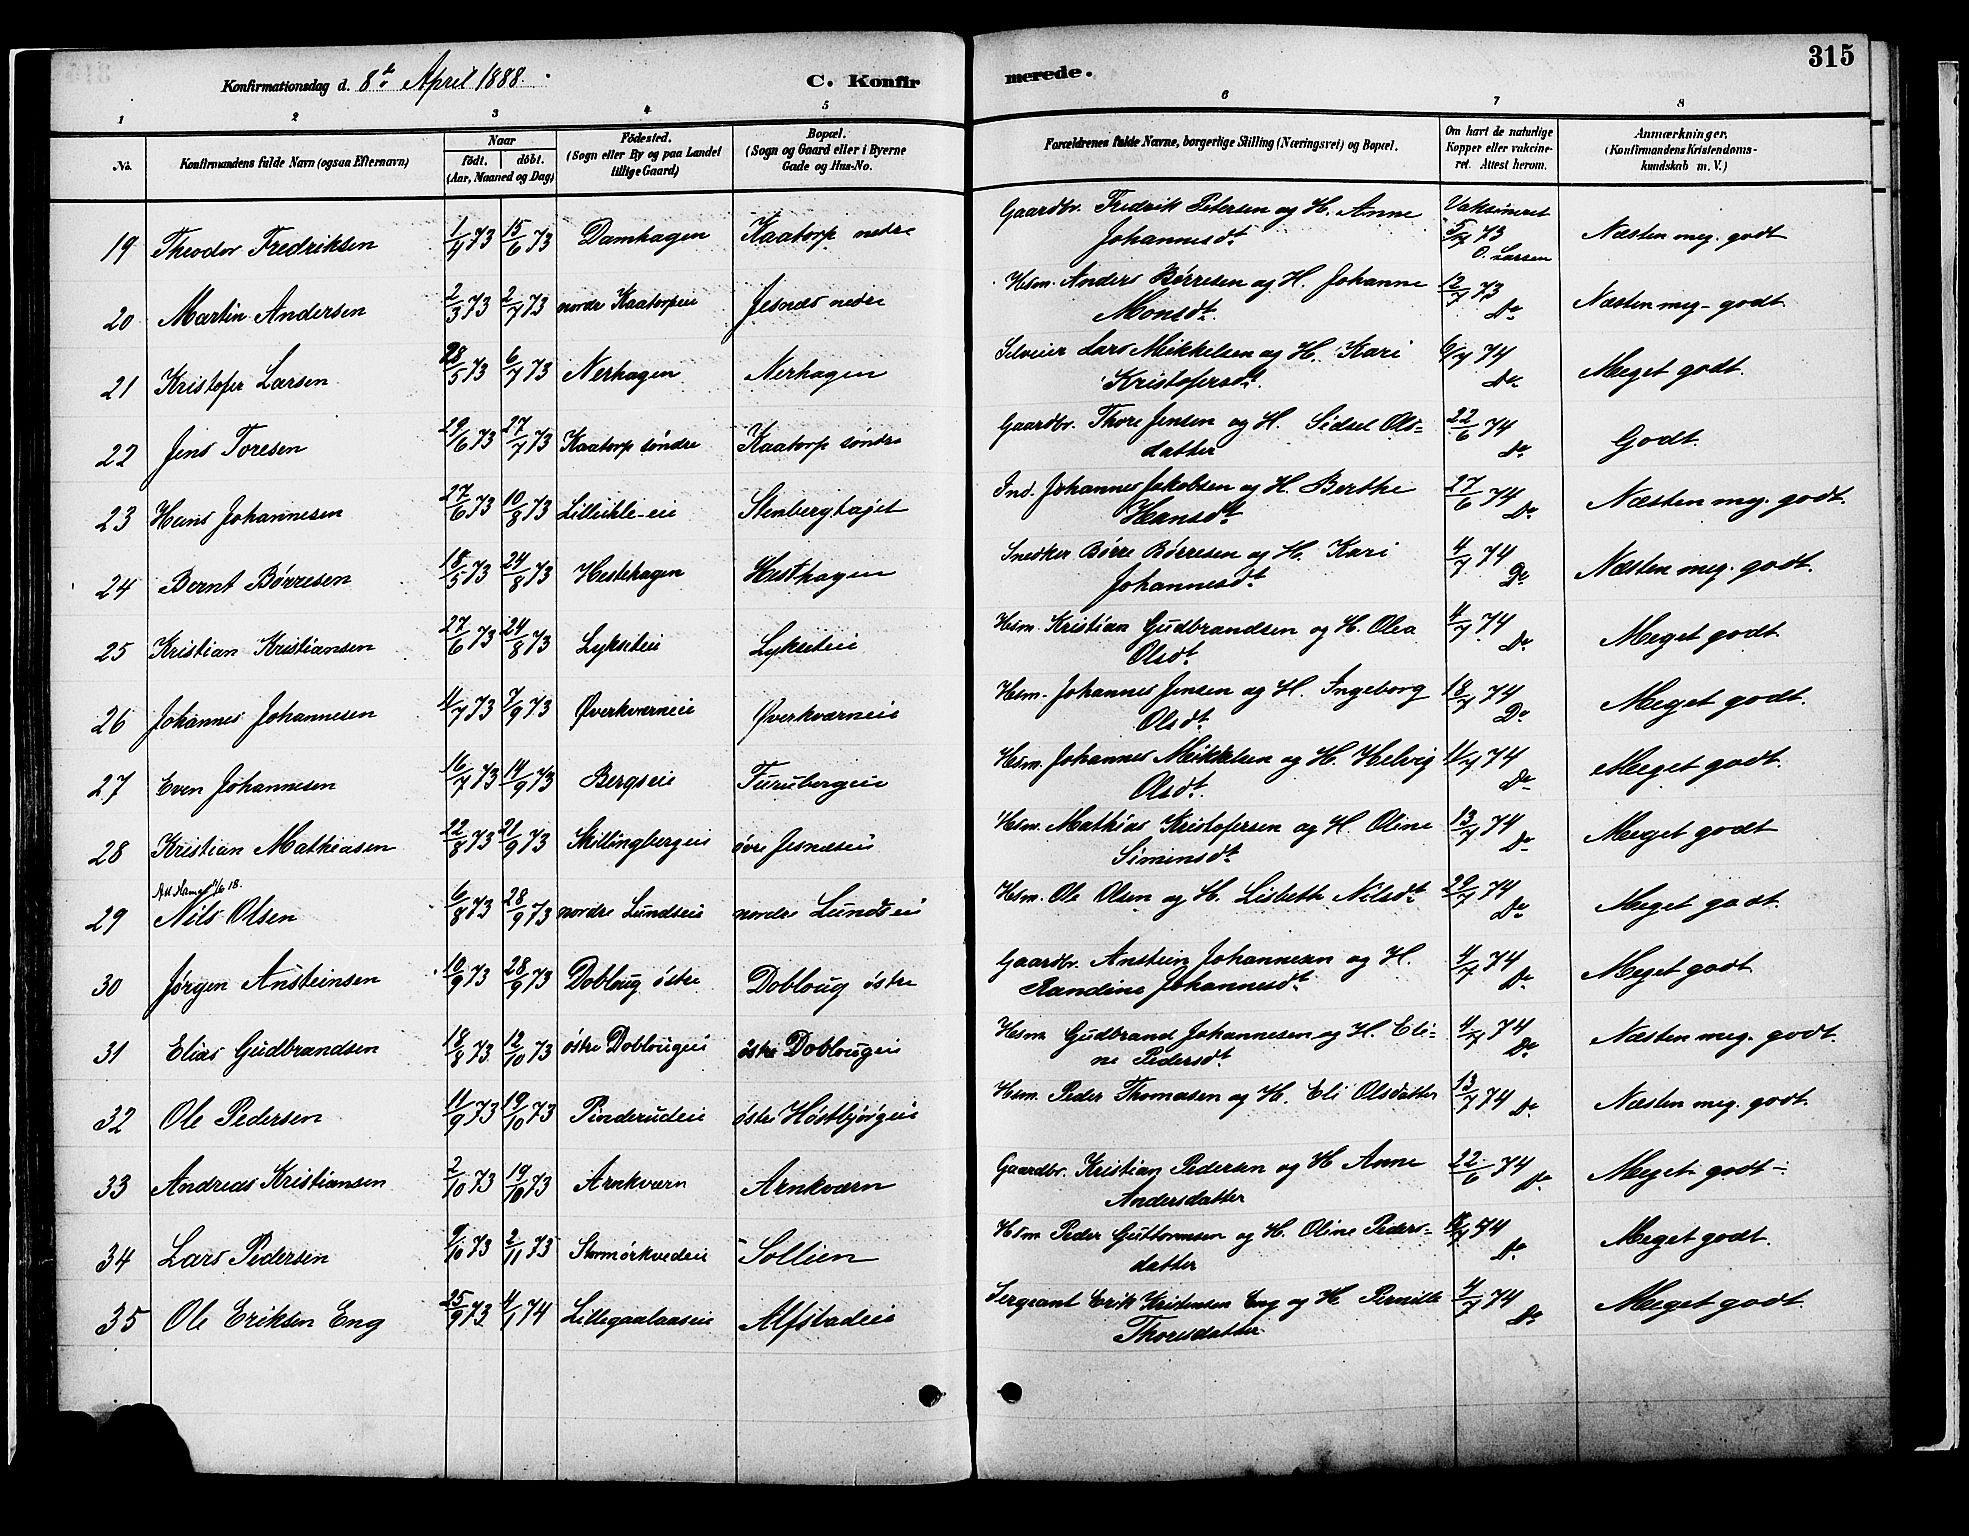 315
Konfirmationsdag d. 8de April 1888. C. Konfirmerede.
1 2 3 4 5 6 7 8
No. Konfirmandens fulde Navn (ogsaa Efternavn) Naar födt. döbt. (Aar, Maaned og Dag) Födested. (Sogn eller By og paa Landet tillige Gaard) Bopæl. (Sogn og Gaard eller i Byerne Gade og Hus-No. Forældrenes fulde Navne, borgerlige Stilling (Næringsvei) og Bopæl. Om havt de naturlige Kopper eller vakcineret. Attest herom. Anmærkninger, (Konfirmandens Kristendomskundskab m. V.)
19 Theodor Fredriksen 1/4 73 15/6 73 Damhagen Kaatorp nedre Gaardbr. Fredrik Petersen og H. Anne Johannesdt. Vaksineret 5/7 73 O. Larsen Næsten meg. godt
20 Martin Andersen 2/3 73 2/7 73 nordre Kaatorpeie Jesnes nedre Hsm. Anders Børresen og H. Johanne Monsdt. 12/7 73 Do Næsten meg. godt
21 Kristofer Larsen 28/5 73 6/7 73 Nerhagen Nerhagen Selveier Lars Mikkelsen og H. Kari Kristofersdt. 6/7 74 Do Meget godt.
22 Jens Toresen 29/6 73 27/7 73 Kaatorp söndre Kaatorp söndre Gaardbr. Thore Jensen og H. Sidsel Olsdatter 22/6 74 Do Godt.
23 Hans Johannesen 27/6 73 10/8 73 Lilleikle-eie Stenbergtajet Ind. Johannes Jakobsen og H. Berthe Hansdt 27/6 74 Do Næsten meg. godt.
24 Bernt Børresen 18/5 73 24/8 73 Hestehagen Hesthagen Snedker Börre Börresen og H. Kari Johannesdt. 4/7 74 Do Næsten meg. godt.
25 Kristian Kristiansen 27/6 73 24/8 73 Lykseteie Lykseteie Hsm. Kristian Gudbrandsen og H. Olea Olsdt. 4/7 74 Do Meget godt
26 Johannes Johannesen 11/7 73 7/9 73 Øverkværneie Øverkværneie Hsm. Johannes Jensen og H. Ingeborg Olsdt. 18/7 74 Do Meget godt.
27 Even Johannesen 16/7 73 14/9 73 Bergseie Furubergeie Hsm. Johannes Mikkelsen og H. Helvig Olsdt. 11/7 74 Do Meget godt.
28 Kristian Mathiasen 22/8 73 21/9 73 Skillingbergeie övre Jesneseie Hsm. Mathias Kristofersen og H. Oline Simensdt. 13/7 74 Do Meget godt
29 Nils Olsen 6/8 73 28/9 73 nordre Lundseie nordre Lundseie Hsm. Ole Olsen og H. Lisbeth Nilsdt 29/7 74 Do Meget godt.
30 Jørgen Ansteinsen 10/9 73 28/9 73 Dobloug östre Dobloug östre Gaardbr. Anstein Johannesen og H. Randine Johannesdt. 4/7 74 Do Meget godt
31 Elias Gudbrandsen 18/8 73 12/10 73 östre Doblougeie östre Doblougeie Hsm. Gudbrand Johannesen og H. Eline Pedersdt. 4/7 74 Do Næsten meg. godt.
32 Ole Pedersen 11/9 73 19/10 73 Pinderudeie östre Hostbjörgeie Hsm. Peder Thomasen og H. Eli Olsdatter 13/7 74 Do Næsten meg. godt.
33 Andreas Kristiansen 2/10 73 19/10 73 Arnkværn Arnkværn Gaardbr. Kristian Pedersen og H Anne Andersdatter 22/6 74 Do Meget godt
34 Lars Pedersen 9/10 73 2/11 73 Sollien Hsm Peder Guttormsen og H. Oline Pedersdatter 74 Do Meget godt.
35 Ole Eriksen Eng 25/9 73 4/1 74 Lillegaalaaseie Alfstadeie Sergeant Erik Kristensen Eng og H. Pernille Thoresdatter 4/7 74 Do Meget godt.